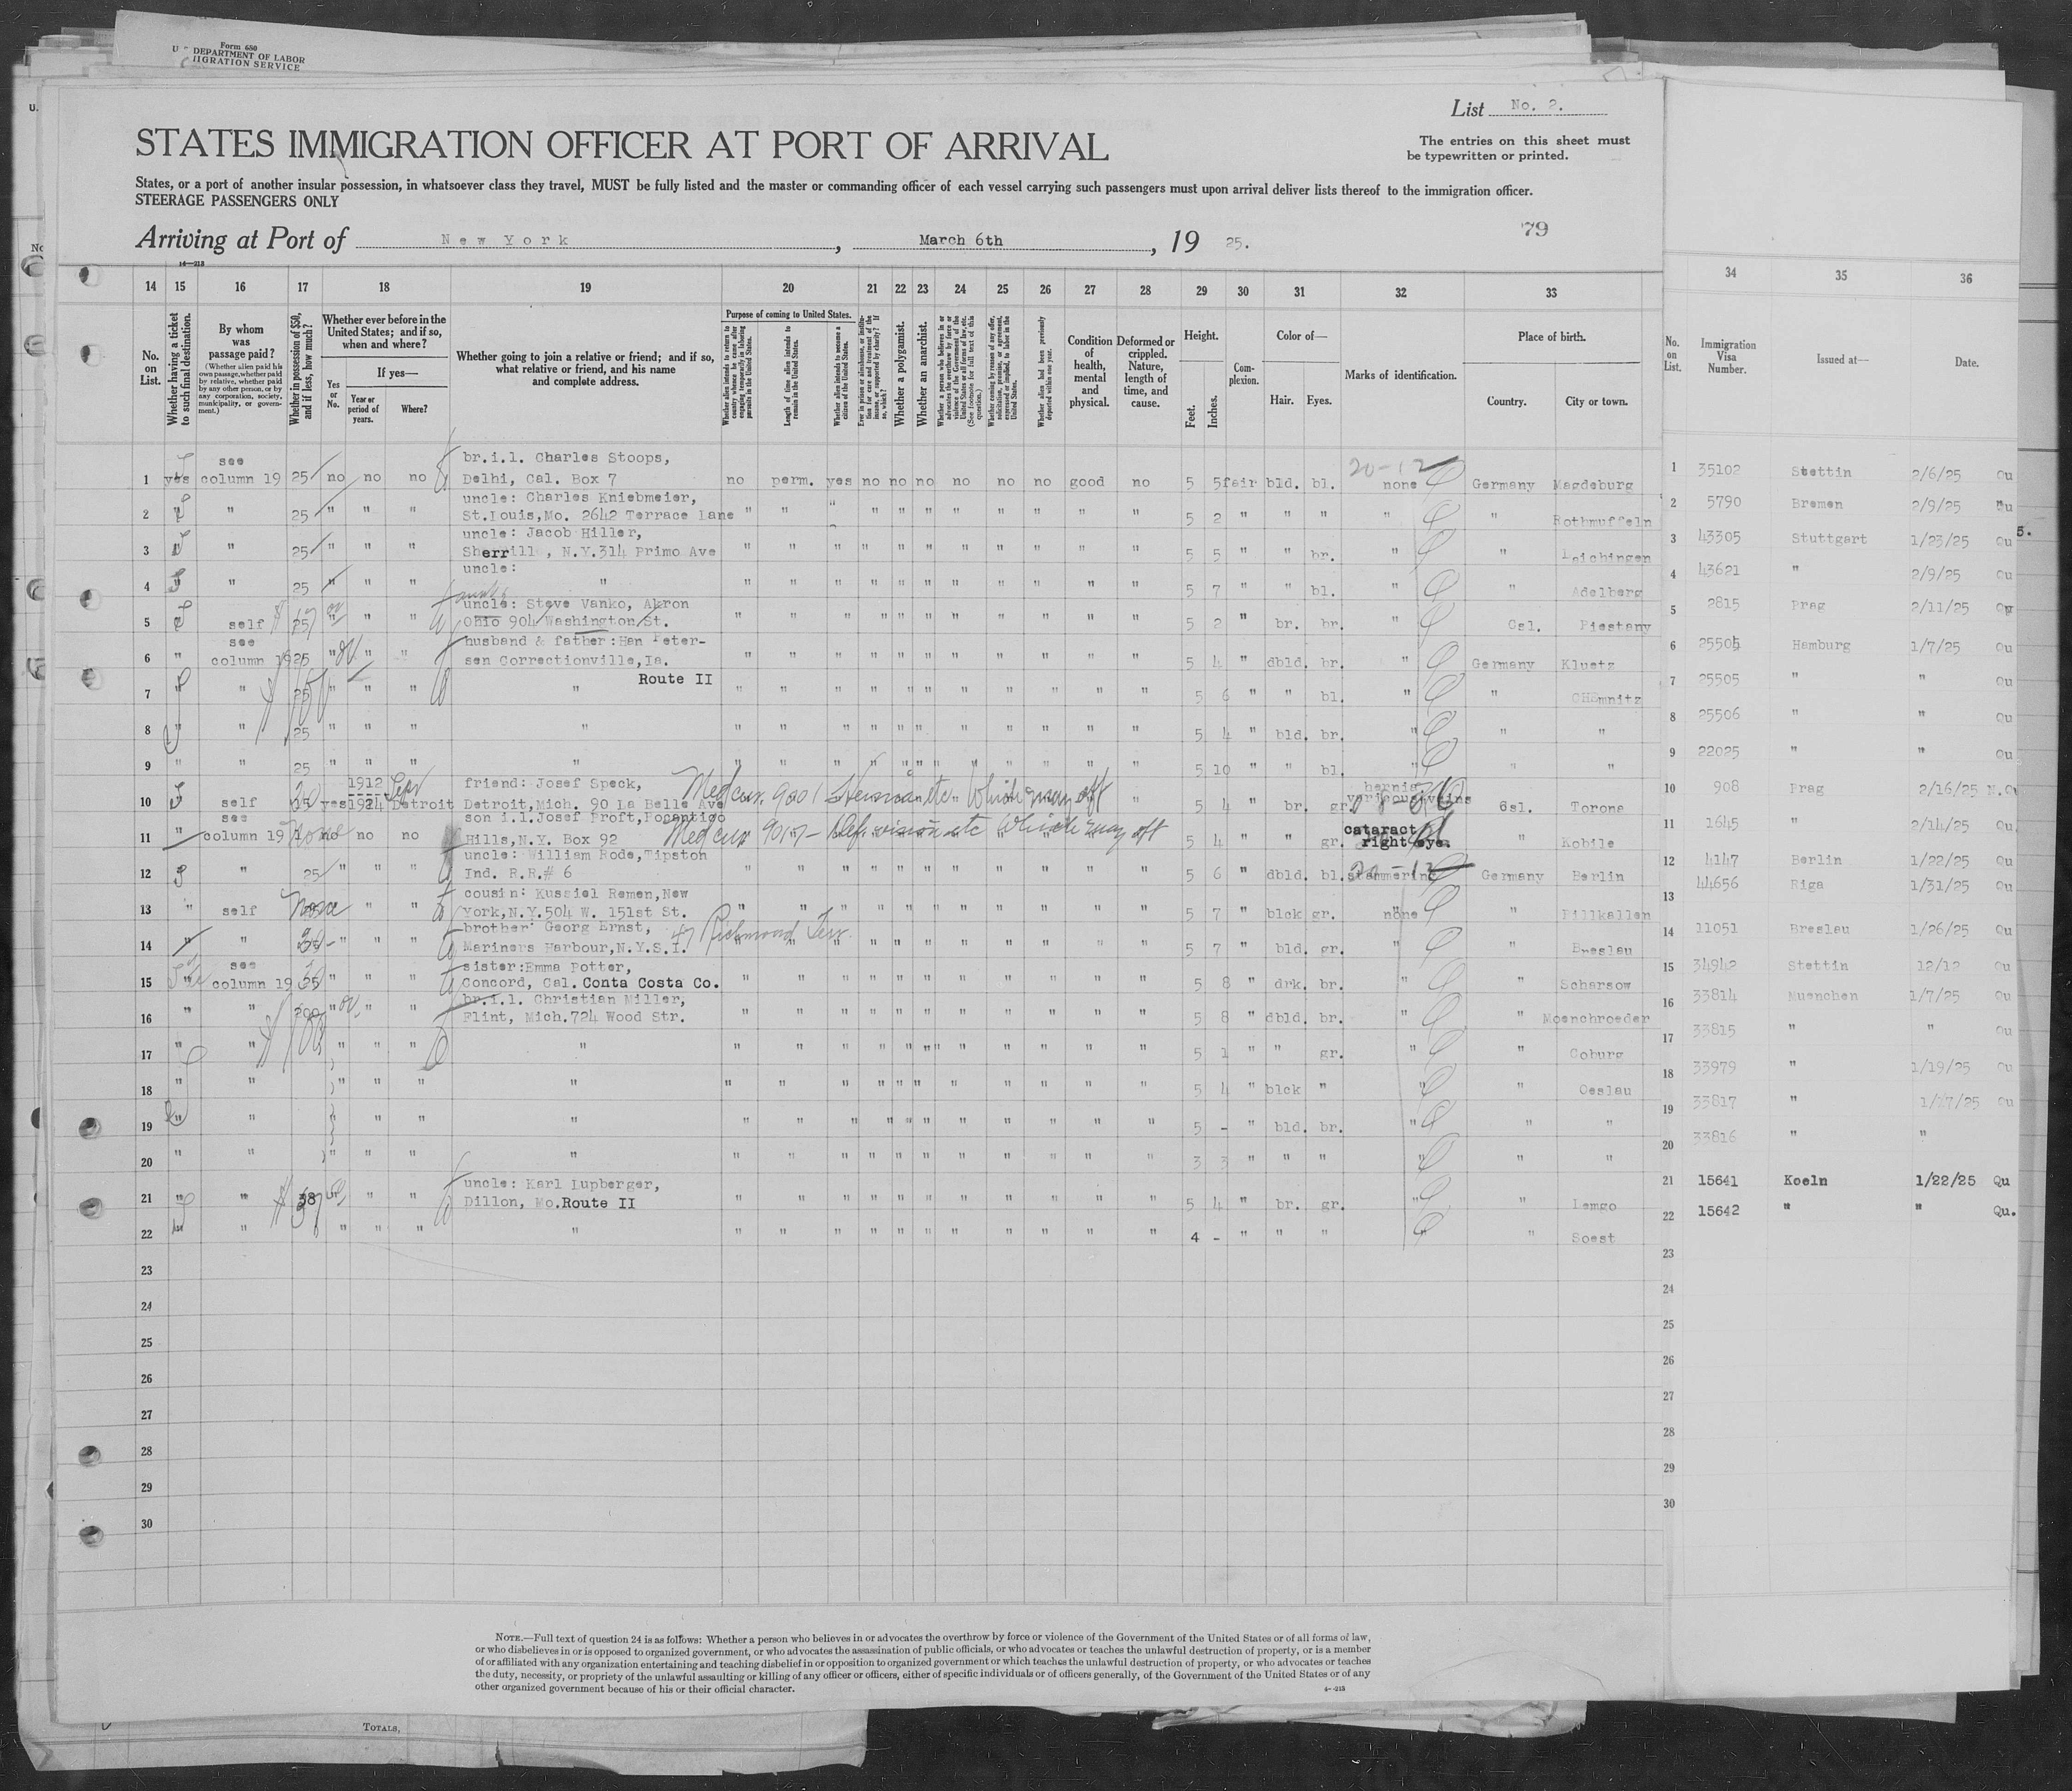 Form 680
U. S. DEPARTMENT OF LABOR
IIGRATION SERVICE
List No. 2.
STATES IMMIGRATION OFFICER AT PORT OF ARRIVAL
The entries on this sheet must
be typewritten or printed.
States, or a port of another insular possession, in whatsoever class they travel, MUST be fully listed and the master or commanding officer of each vessel carrying such passengers must upon arrival deliver lists thereof to the immigration officer.
STEERAGE PASSENGERS ONLY
Arriving at Port of New York, March 6th, 19 25.
79
14 15 16 17 18 19 20 21 22 23 24 25 26 27 28 29 30 31 32 33 34 35 36
No. on List.
Whether having a ticket to such final destination.
By whom was passage paid?
(Whether alien paid his own passage, whether paid by relative, whether paid by any other person, or by any corporation, society, municipality, or government.)
Whether in possession of $50, and if less, how much?
Whether ever before in the United States; and if so, when and where?
Yes or No.
If yes—
Year or period of years.
Where?
Whether going to join a relative or friend; and if so, what relative or friend, and his name and complete address.
Purpose of coming to United States.
Whether alien intends to return to country whence he came after engaging temporarily in laboring pursuits in the United States.
Length of time alien intends to remain in the United States.
Whether alien intends to become a citizen of the United States.
Whether a polygamist.
Whether an anarchist.
Condition of health, mental and physical.
Deformed or crippled. Nature, length of time, and cause.
Height.
Feet. Inches.
Complexion.
Color of—
Hair. Eyes.
Marks of identification.
Place of birth.
Country. City or town.
No. on List.
Immigration Visa Number.
Issued at—
Date.
1 yes see column 19 25 no no no br.i.l. Charles Stoops, Delhi, Cal. Box 7 no perm. yes no no no no no no good no 5 5 fair bld. bl. 20-12 none Germany Magdeburg 1 35102 Stettin 2/6/25 Qu
2 " " 25 " " " uncle: Charles Kniebmeier, St.Louis,Mo. 2642 Terrace Lane " " " " " " " " " " " 5 2 " " " " " Rothmuffeln 2 5790 Bremen 2/9/25 Qu
3 " " 25 " " " uncle: Jacob Hiller, Sherrill , N.Y.314 Primo Ave " " " " " " " " " " " 5 5 " " br. " " 3 43305 Stuttgart 1/23/25 Qu
4 " " 25 " " " uncle: " " " " " " " " " " " " 5 7 " " bl. " " Adelberg 4 43621 " 2/9/25 Qu
5 " self 25 " " " uncle: Steve Vanko, Akron Ohio 904 Washington St. " " " " " " " " " " " 5 2 " br. br. " Csl. Piestany 5 2815 Prag 2/11/25 Qu
6 " see column 19 25 " " " husband & father: Han Petersen Correctionville,Ia. " " " " " " " " " " " 5 4 " dbld. br. " Germany Kluetz 6 25505 Hamburg 1/7/25 Qu
7 " " 25 " " " " Route II " " " " " " " " " " " 5 6 " " bl. " " CHEmnitz 7 25505 " " Qu
8 " " 25 " " " " " " " " " " " " " " " 5 4 " bld. br. " " " 8 25506 " " Qu
9 " " 25 " " " " " " " " " " " " " " " 5 10 " " bl. " " " 9 22025 " " Qu
10 self yes 1912 1924 Detroit friend: Josef Speck, Detroit,Mich. 90 La Belle Ave Med cer. 9001 Hernia etc Which may aff " 5 4 " br. gr. hernia varicous veins Csl. Torone 10 908 Prag 2/16/25
11 " see column 19 None no no no son i.l.Josef Proft,Pocantigo Hills,N.Y. Box 92 Med cer 9017 - Def. vision etc Which may aff 5 4 " " gr. cataract right eye. " Kobile 11 1645 " 2/14/25 Qu
12 " 25 " " " uncle: William Rode,Tipston Ind. R.R.# 6 " " " " " " " " " " " 5 6 " dbld. bl. stammering Germany Berlin 12 4147 Berlin 1/22/25 Qu
13 " self None " " " cousin: Kussiel Remen,New York,N.Y.504 W. 151st St. " " " " " " " " " " " 5 7 " blck gr. none " Pillkallen 13 44656 Riga 1/31/25 Qu
14 " " 30 " " " brother: Georg Ernst, Mariners Harbour,N.Y.S.I. 47 Richmond Terr. " " " " " " " " " " " 5 7 " bld. gr. " " Breslau 14 11051 Breslau 1/26/25 Qu
15 " see column 19 " " " sister:Emma Potter, Concord, Cal. Conta Costa Co. " " " " " " " " " " " 5 8 " drk. br. " " Scharsow 15 34942 Stettin 12/12 Qu
16 " " 200 " " " br.i.l. Christian Miller, Flint, Mich.724 Wood Str. " " " " " " " " " " " 5 8 " dbld. br. " " Moenchroeder 16 33814 Muenchen 1/7/25 Qu
17 " " " " " " " " " " " " " " " " " 5 1 " " gr. " " Coburg 17 33815 " " Qu
18 " " " " " " " " " " " " " " " " " 5 4 " blck " " " Oeslau 18 33979 " 1/19/25 Qu
19 " " " " " " " " " " " " " " " " " 5 - " bld. br. " " " 19 33817 " 1/27/25 Qu
20 " " " " " " " " " " " " " " " " " 3 3 " " " " " " 20 33816 " "
21 " " 38 " " uncle: Karl Lupberger, Dillon, Mo.Route II " " " " " " " " " " " 5 4 " br. gr. " " Lemgo 21 15641 Koeln 1/22/25 Qu
22 " " " " " " " " " " " " " " " " " 4 - " " " " " Soest 22 15642 " " Qu.
23 23
24 24
25 25
26 26
27 27
28 28
29 29
30 30
NOTE.—Full text of question 24 is as follows: Whether a person who believes in or advocates the overthrow by force or violence of the Government of the United States or of all forms of law,
or who disbelieves in or is opposed to organized government, or who advocates the assassination of public officials, or who advocates or teaches the unlawful destruction of property, or is a member
of or affiliated with any organization entertaining and teaching disbelief in or opposition to organized government or which teaches the unlawful destruction of property, or who advocates or teaches
the duty, necessity, or propriety of the unlawful assaulting or killing of any officer or officers, either of specific individuals or of officers generally, of the Government of the United States or of any
other organized government because of his or their official character.
TOTALS,